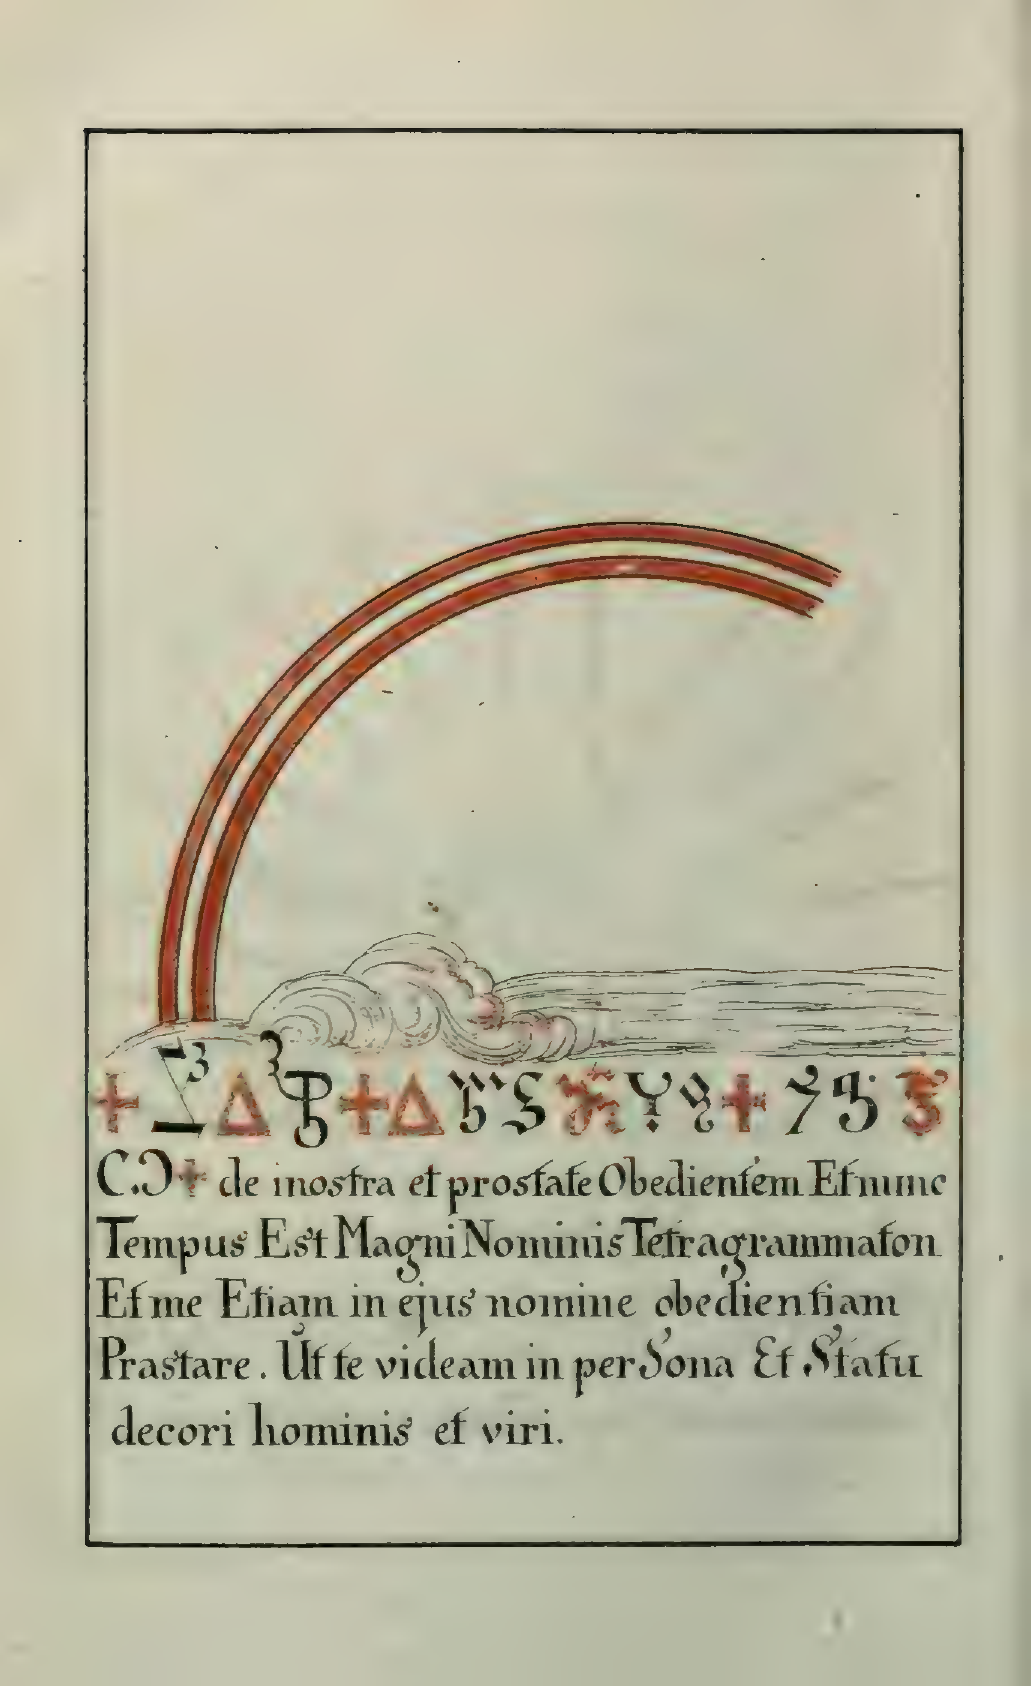 C.Ɔ+ de mostra et prostate Obedientem Et nunc
Tempus Est Magni Nominis Tetragrammaton
Et me Etiam in ejus nomine obedientiam
Prastare. Ut te videam in perSona Et Statu
decori hominis et viri.